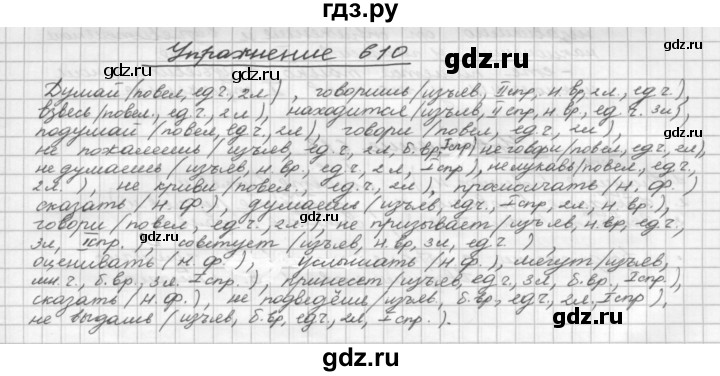 гдз.ру
Упражнение 610
gdz.ru gdz.ru
Думай (повел, ед.ч., 2л.), говоришь (изъяв, II спр, н. вр, 2л., ед.ч.),
взвесь (повел, ед.ч., 2л.), находится (изъяв, II спр, н. вр, ед. ч. 3л),
подумай (повел, ед.ч., 2л), говори (повел, ед.ч, 2л),
не пожалеешь (изъяв, ед.ч., 2л, б.вр, I спр), не говори (повел, ед.ч, 2л),
не думаешь (изъяв, н. вр, ед.ч, 2л, I спр), не лукавь (повел, ед.ч,
2л.), не криви (повел., ед.ч, 2л), промолчать (н. ф.)
сказать (н. ф.), думаешь (изъяв, ед.ч., I спр, 2л, н. вр),
говори (повел, ед.ч, 2л), не призывает (изъяв, н. вр, ед.ч,
3л, I спр.), советует (изъяв, н. вр, 3л, ед. ч),
оценивать (н. ф), услышать (н. ф), могут (изъяв,
мн. ч, б. вр, 3л. I спр.), принесет (изъяв, ед.ч, 3л, б. вр, I спр.),
сказать (н. ф.), не подведёшь (изъяв, б. вр, ед.ч, 2л, I спр),
не выдашь (изъяв, б. вр, ед.ч, 2л, I спр.).
gdz.ru
gdz.ru
gdz.ru